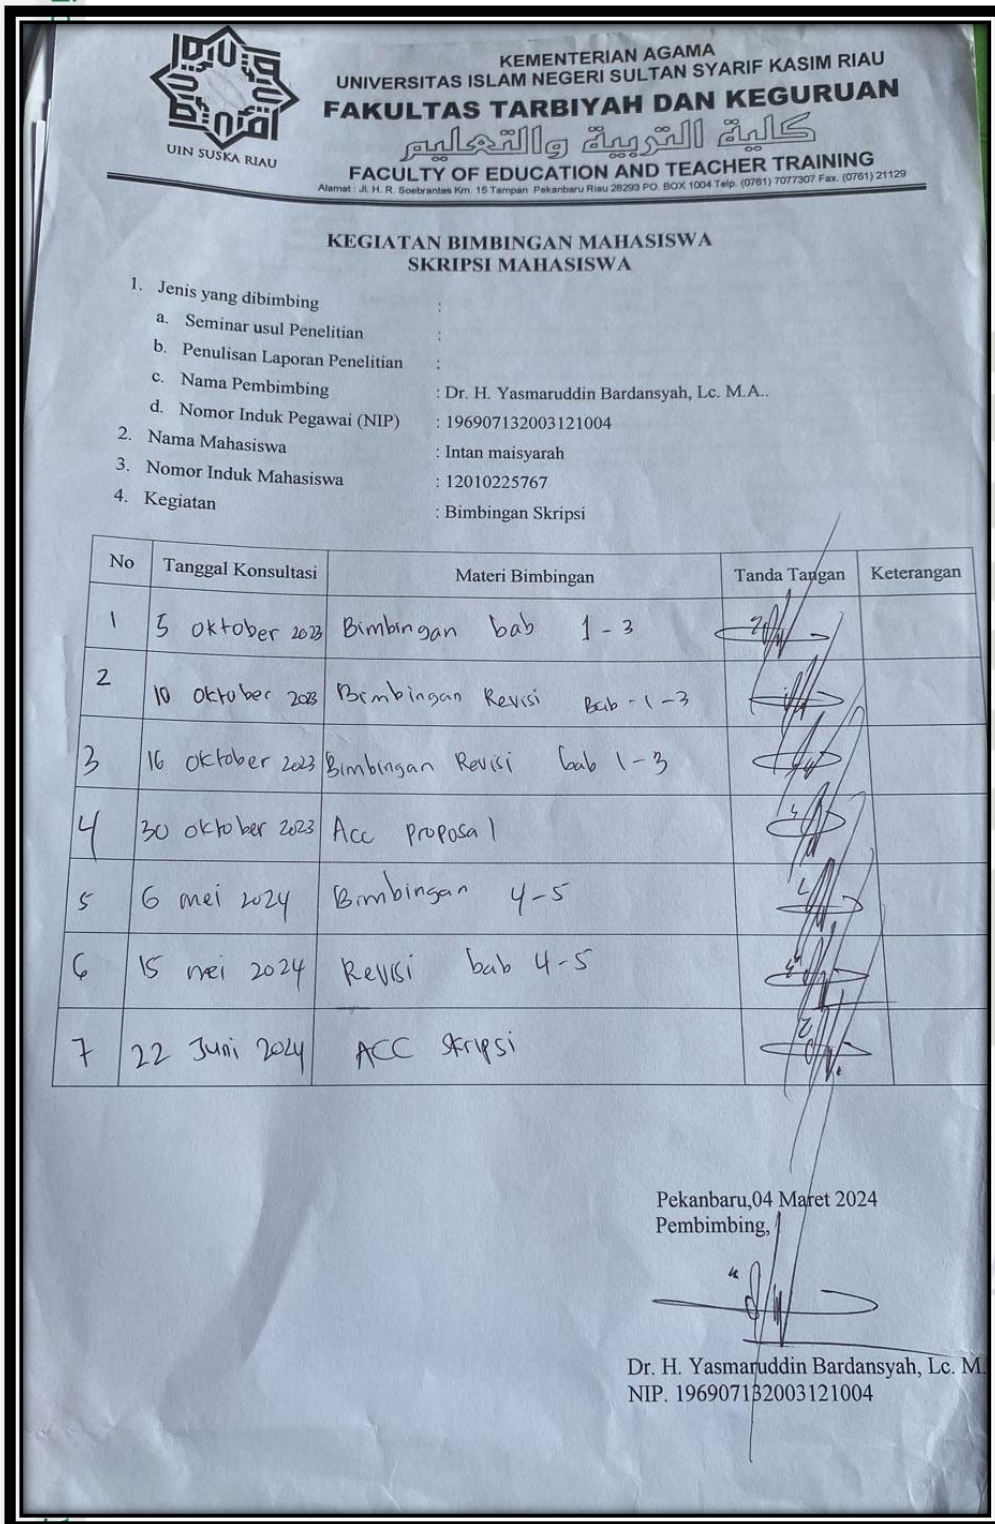 UIN SUSKA RIAU
KEMENTERIAN AGAMA
UNIVERSITAS ISLAM NEGERI SULTAN SYARIF KASIM RIAU
FAKULTAS TARBIYAH DAN KEGURUAN
كلية التربية والتعليم
FACULTY OF EDUCATION AND TEACHER TRAINING
Alamat : Jl. H. R. Soebrantas Km. 15 Tampan Pekanbaru Riau 28293 PO. BOX 1004 Telp. (0761) 7077307 Fax. (0761) 21129
KEGIATAN BIMBINGAN MAHASISWA
SKRIPSI MAHASISWA
1. Jenis yang dibimbing :
a. Seminar usul Penelitian :
b. Penulisan Laporan Penelitian :
c. Nama Pembimbing : Dr. H. Yasmaruddin Bardansyah, Lc. M.A..
d. Nomor Induk Pegawai (NIP) : 196907132003121004
2. Nama Mahasiswa : Intan maisyarah
3. Nomor Induk Mahasiswa : 12010225767
4. Kegiatan : Bimbingan Skripsi
No Tanggal Konsultasi Materi Bimbingan Tanda Tangan Keterangan
1 5 oktober 2023 Bimbingan bab 1 - 3
2 10 oktober 2023 Bimbingan Revisi Bab - 1 - 3
3 16 oktober 2023 Bimbingan Revisi bab 1 - 3
4 30 oktober 2023 Acc proposal
5 6 mei 2024 Bimbingan 4 - 5
6 15 mei 2024 Revisi bab 4 - 5
7 22 Juni 2024 ACC Skripsi
Pekanbaru,04 Maret 2024
Pembimbing,
Dr. H. Yasmaruddin Bardansyah, Lc. M.
NIP. 196907132003121004